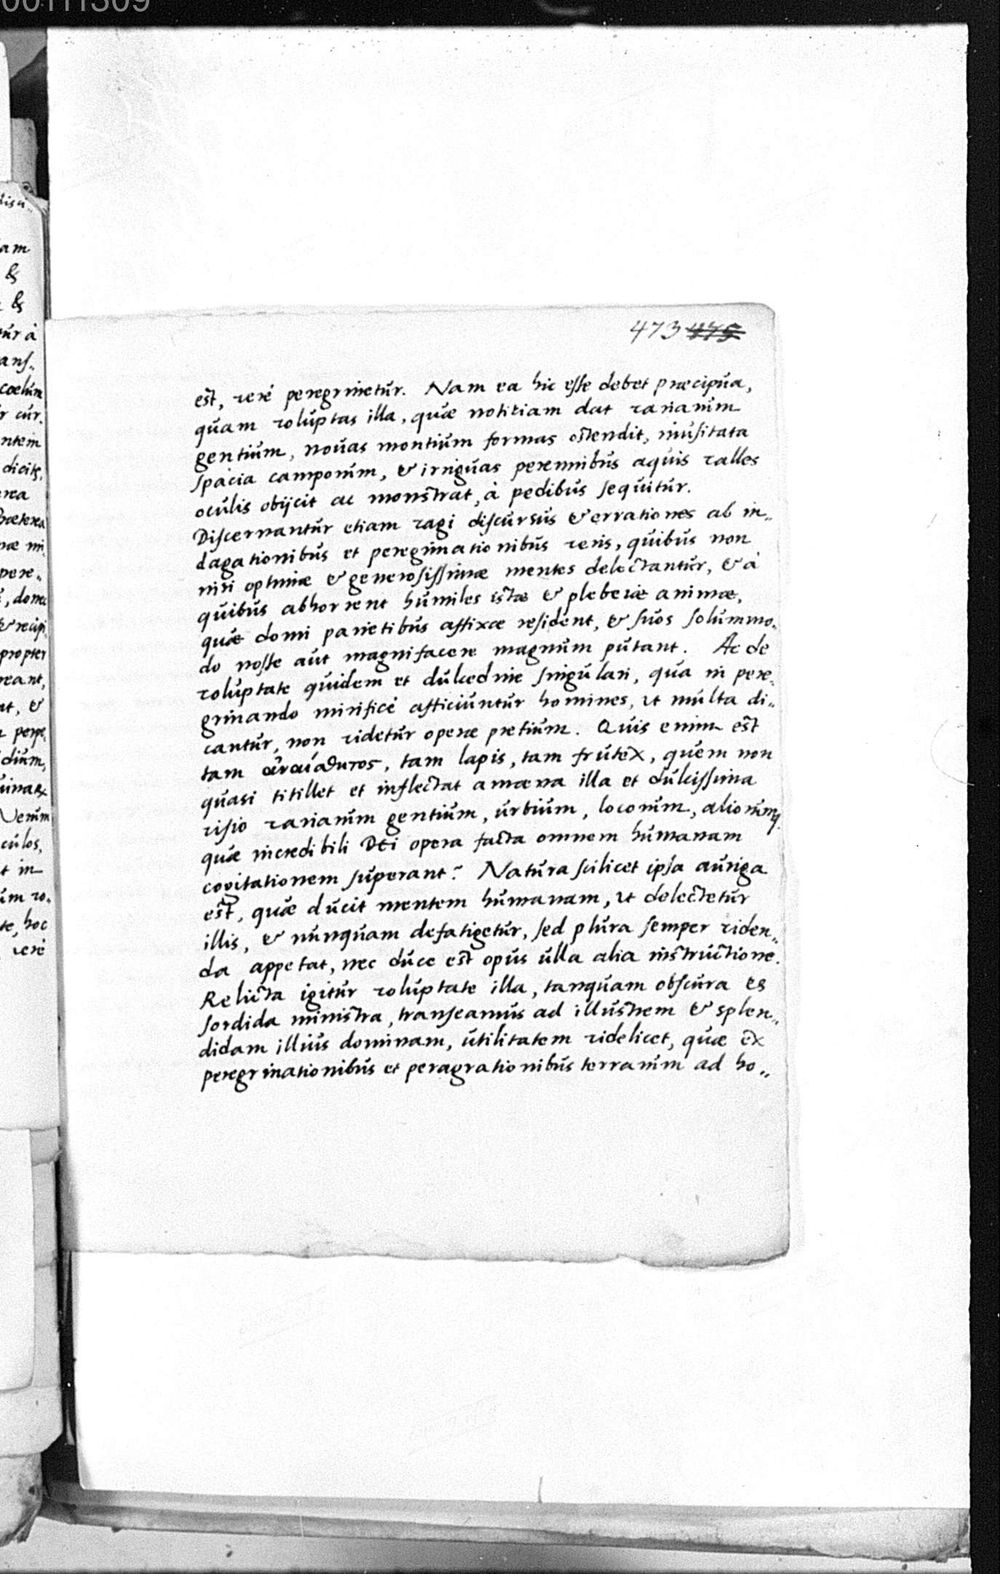 00111309
473 475
est, vere peregrinetur. Nam ea hic esse debet præcipua,
quam voluptas illa, quæ notitiam dat variarum
gentium, nouas montium formas ostendit, inusitata
spacia camporum, & irriguas perennibus aquis valles
oculis obijcit ac monstrat, à pedibus sequitur.
Discernantur etiam vagi discursus & errationes ab in„
dagationibus et peregrinationibus veris, quibus non
nisi optimæ & generosissimæ mentes delectantur, & à
quibus abhorrent humiles istæ & plebeiæ animæ,
quæ domi parietibus affixæ resident, & suos solummo„
do nosse aut magnifacere magnum putant. Ac de
voluptate quidem et dulcedine singulari, qua in pere„
grinando mirificè afficiuntur homines, ut multa di„
cantur, non videtur operæ pretium. Quis enim est
tam ἀναίσθητος, tam lapis, tam frutex, quem non
quasi titillet et inflectat amæna illa et dulcissima
visio variarum gentium, urbium, locorum, aliorumq
quæ incredibili Dei opera facta omnem humanam
cogitationem superant? Natura scilicet ipsa auriga
est, quæ ducit mentem humanam, ut delectetur
illis, & nunquam defatigetur, sed plura semper viden„
da appetat, nec duce est opus ulla alia instructione.
Relicta igitur voluptate illa, tanquam obscura &
sordida ministra, transeamus ad illustrem & splen„
didam illius dominam, utilitatem videlicet, quæ ex
peregrinationibus et peragrationibus terrarum ad ho„